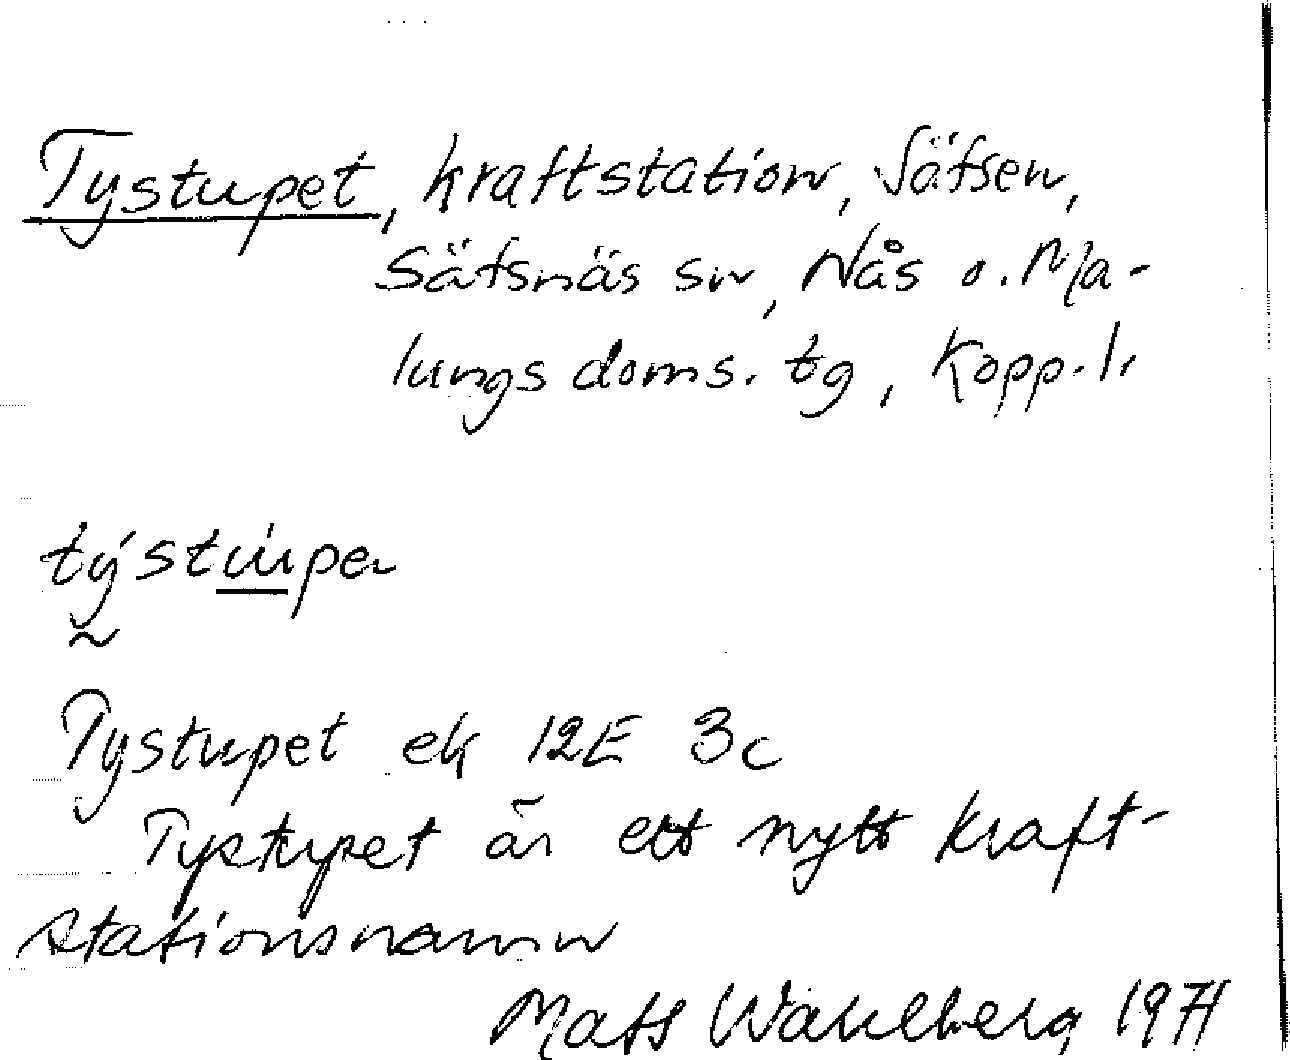 Tystupet, kraftstation, Säfsen,
Säfsnäs sn, Nås o. Ma-
lungs doms. tg, Kopp. l.
týstùper
~
Tystupet ek 12E 3c
Tystupet är ett nytt kraft-
stationsnamn
Mats Wahlberg 1971